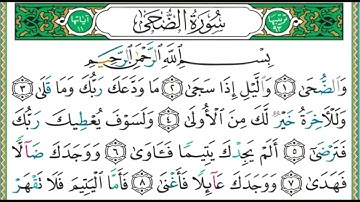 ترتيبها ٩٣ سُورَةُ الضُّحَىٰ آياتها ١١
بِسْمِ اللَّهِ الرَّحْمَٰنِ الرَّحِيمِ
وَالضُّحَىٰ ۝١ وَاللَّيْلِ إِذَا سَجَىٰ ۝٢ مَا وَدَّعَكَ رَبُّكَ وَمَا قَلَىٰ ۝٣
وَلَلْآخِرَةُ خَيْرٌ لَّكَ مِنَ الْأُولَىٰ ۝٤ وَلَسَوْفَ يُعْطِيكَ رَبُّكَ
فَتَرْضَىٰ ۝٥ أَلَمْ يَجِدْكَ يَتِيمًا فَآوَىٰ ۝٦ وَوَجَدَكَ ضَالًّا
فَهَدَىٰ ۝٧ وَوَجَدَكَ عَائِلًا فَأَغْنَىٰ ۝٨ فَأَمَّا الْيَتِيمَ فَلَا تَقْهَرْ